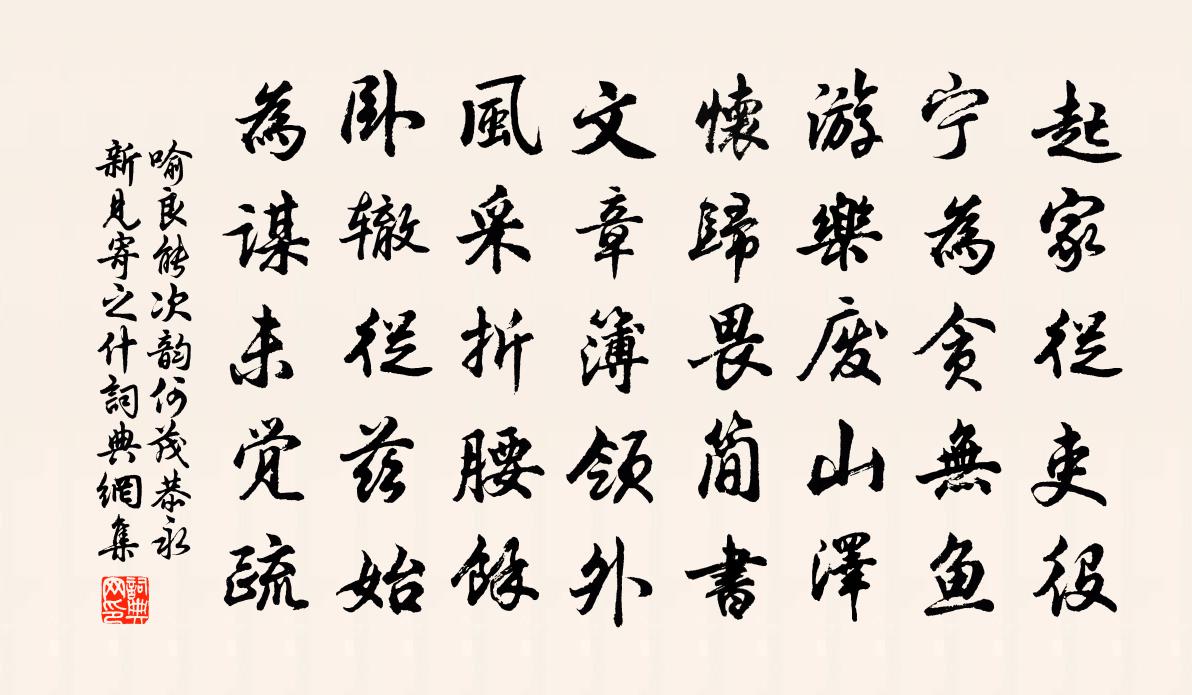 起家從吏役
宁為貪無魚
游樂廢山澤
懷歸畏簡書
文章簿領外
風采折腰餘
臥轍從茲始
為謀未覺疏
喻良能次韵何茂恭永
新見寄之什詞典網集
詞典網印